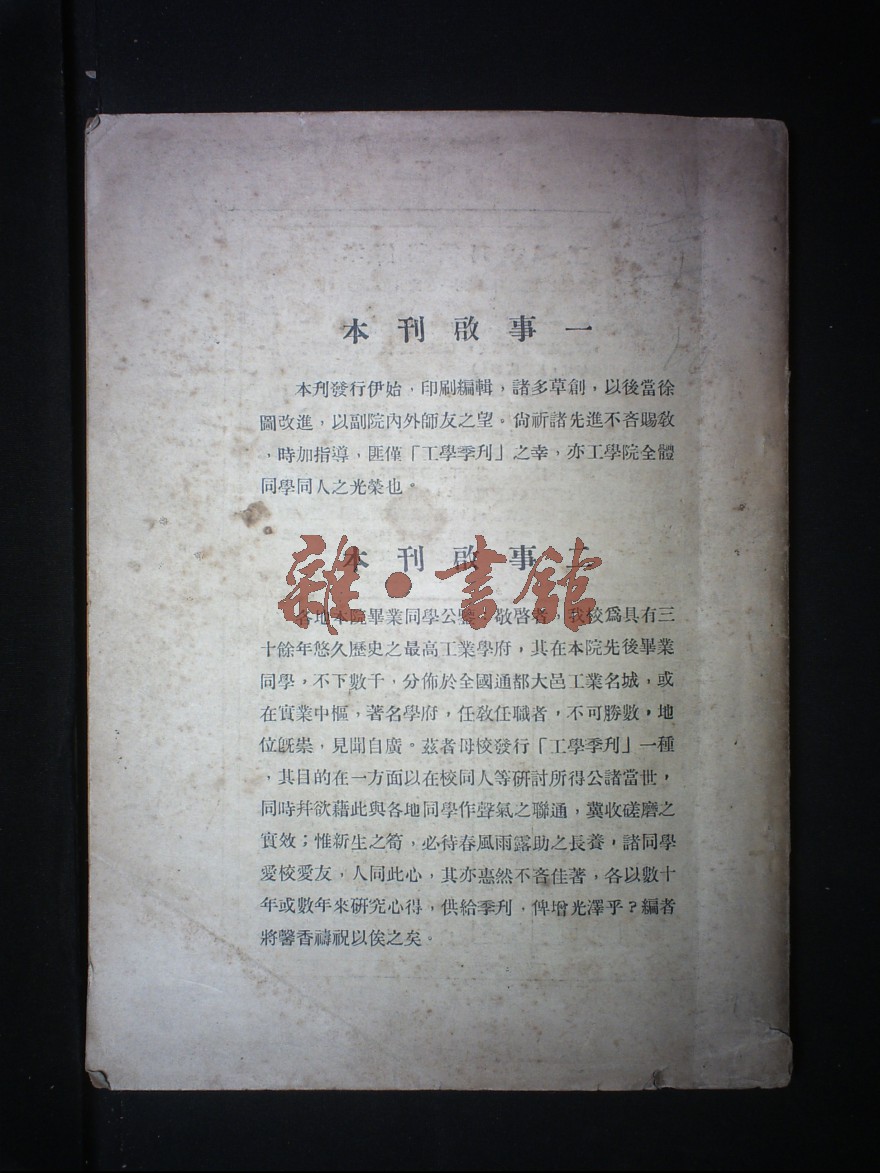 本刊啟事一
本刊發行伊始，印刷編輯，諸多草創，以後當徐
圖改進，以副院內外師友之望。尙祈諸先進不吝賜敎
，時加指導，匪僅「工學季刋」之幸，亦工學院全體
同學同人之光榮也。
本刊啟事二
雜·書館
各地本院畢業同學公鑒，敬啓者，我校爲具有三
十餘年悠久歷史之最高工業學府，其在本院先後畢業
同學，不下數千，分佈於全國通都大邑工業名城，或
在實業中樞，著名學府，任敎任職者，不可勝數，地
位旣崇，見聞自廣。茲者母校發行「工學季刋」一種
，其目的在一方面以在校同人等硏討所得公諸當世，
同時幷欲藉此與各地同學作聲氣之聯通，冀收磋磨之
實效；惟新生之筍，必待春風雨露助之長養，諸同學
愛校愛友，人同此心，其亦惠然不吝佳著，各以數十
年或數年來硏究心得，供給季刋，俾增光澤乎？編者
將馨香禱祝以俟之矣。